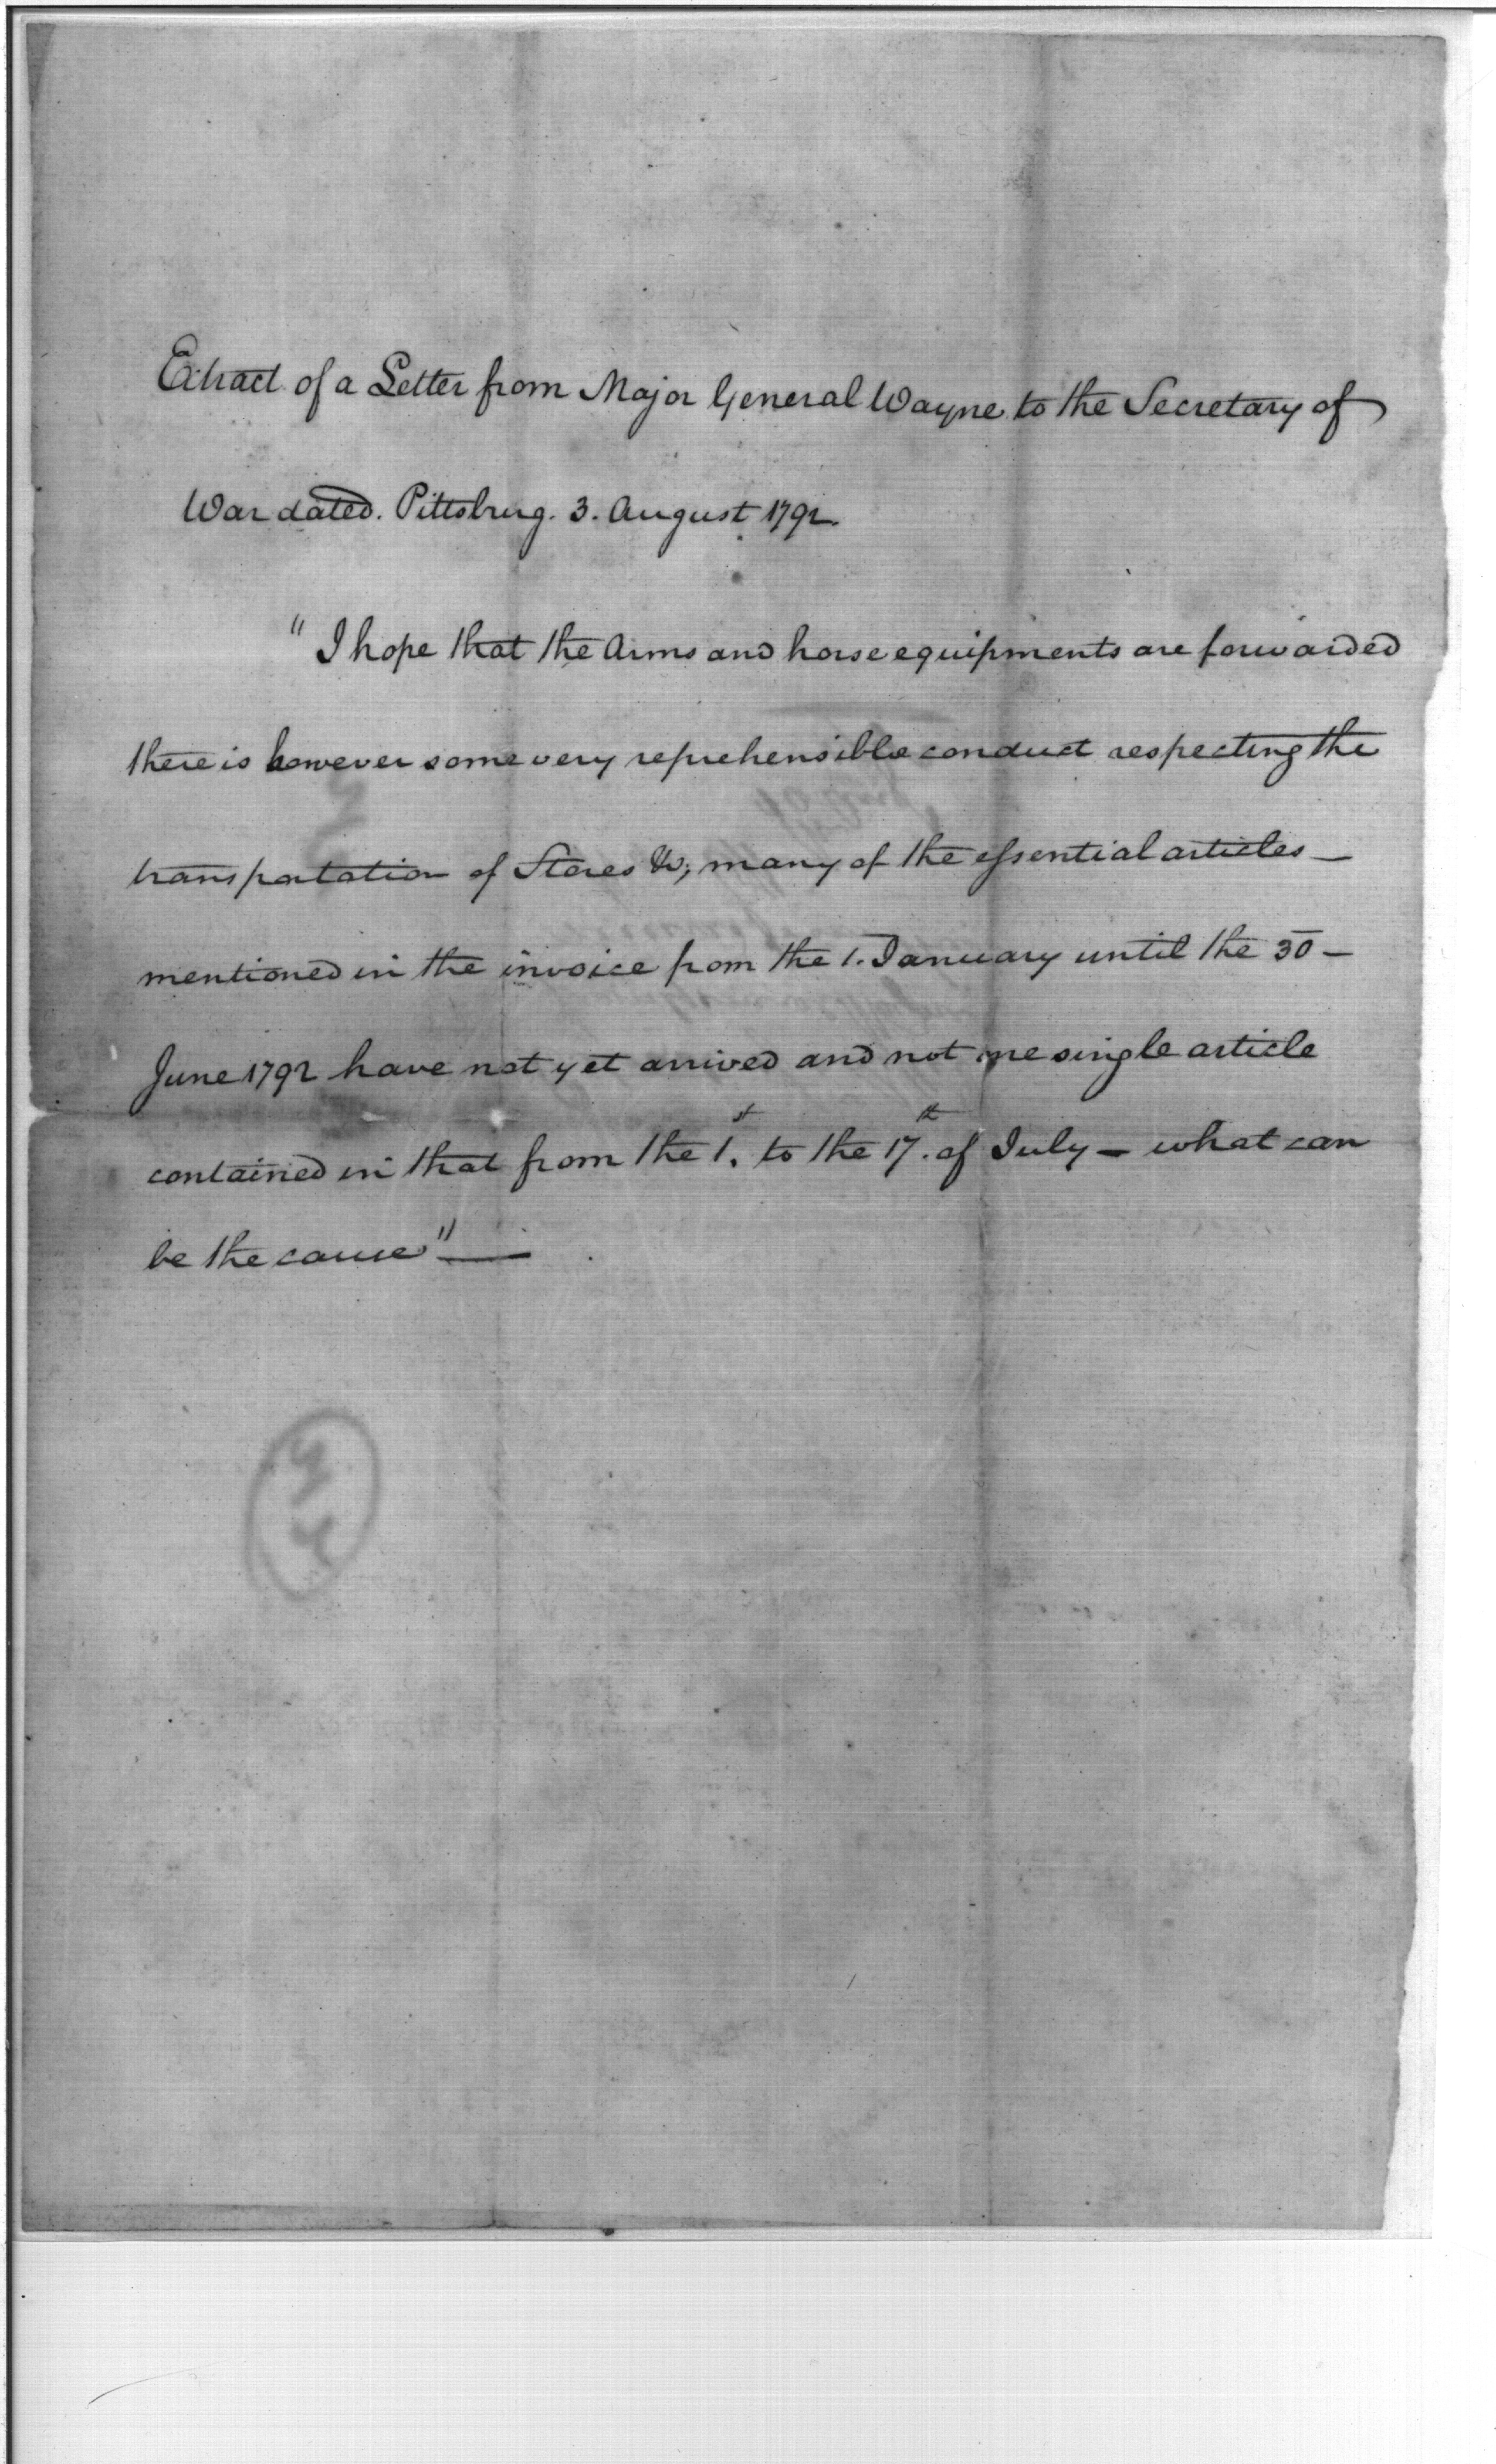 Extract of a Letter from Major General Wayne to the Secretary of
War dated. Pittsbrug. 3. August 1792.
"I hope that the Arms and horse equipments are forwarded
there is however some very reprehensible conduct respecting the
transportation of Stores &c; many of the essential articles —
mentioned in the invoice from the 1. January until the 30 —
June 1792 have not yet arrived and not one single article
contained in that from the 1.st to the 17.th of July — what can
be the cause" —